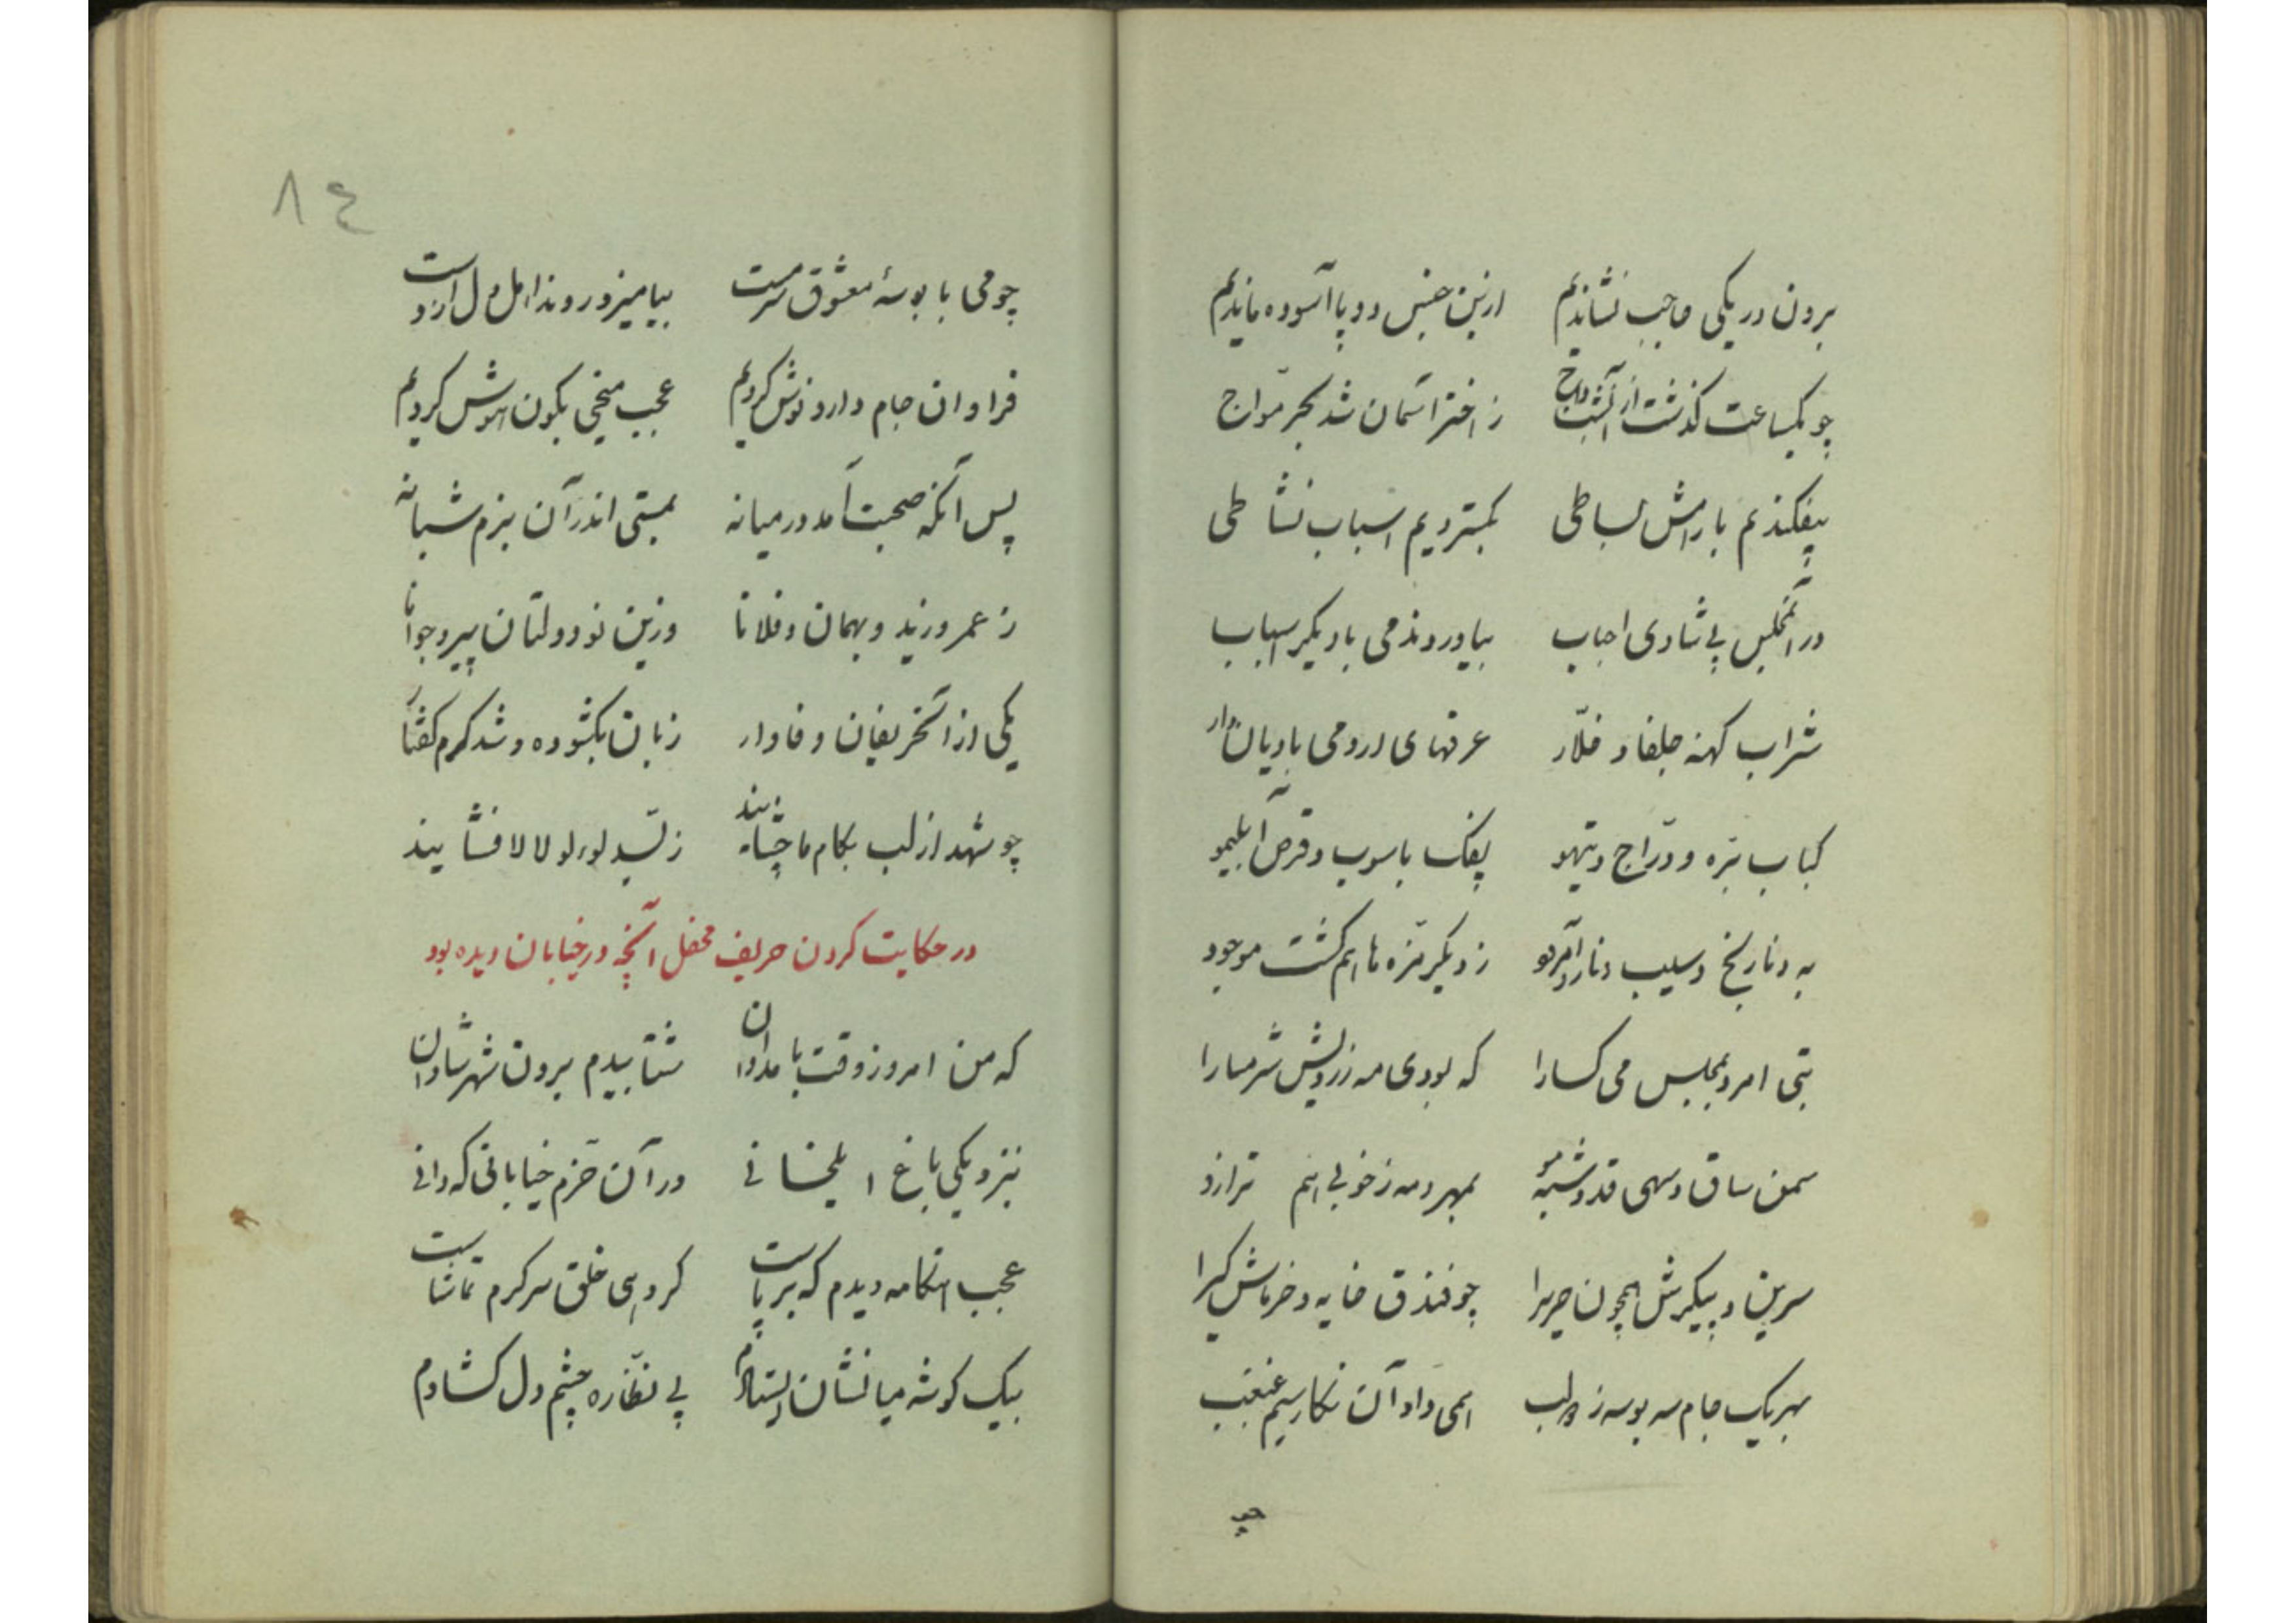 برون در یکی حاجب نشاندیم ازین جنبش دو پا آسوده ماندیم
چو یکساعت گذشت از آنشب داج ز اختر آسمان شد بحر موّاج
بیفکندیم بارامش بساطی بگستردیم اسباب نشاطی
در آنمجلس پی شادی احباب بیاوردند می با دیگر اسباب
شراب کهنه جلفا و خلّار عرقهای ارومی بادیان دار
کباب برّه و درّاج و تیهو پفک با سوپ و قرص آبلیمو
به و نارنج و سیب و نار و آمرود ز دیگر مزه ها هم گشت موجود
بتی امرد بمجلس می کسارا که بودی مه ز رویش شرمسارا
سمن ساق و سهی قد و شبه مو بمهر و مه ز خوبی هم ترازو
سرین و پیکرش همچون حریرا چو فندق خایه و خرماش کیرا
بهر یک جام سه بوسه ز لب همی داد آن نگار سیم غبغب
چو
٨٤
چو می با بوسهٔ معشوق سرمست بیامیزد روند اهل دل از دست
فراوان جام دارو نوش کردیم عجب میخی بکون هوش کردیم
پس آنگه صحبت آمد در میانه بمستی اندر آن بزم شبانه
ز عمرو و زید و بهمان و فلانا وزین نو دولتان پیر و جوانا
یکی از آنحریفان وفادار زبان بگشوده و شد گرم گفتار
چو شهد از لب بکام ما چشانید ز لب لولو لالا فشانید
در حکایت کردن حریف محفل آنچه در خیابان دیده بود
که من امروز وقت بامدادان شتابیدم برون شهر شادان
بنزدیکی باغ ایلخانی در آن خرّم خیابانی که دانی
عجب هنگامه دیدم که برپاست گروهی خلق سرگرم تماشاست
بیک گوشه میانشان ایستادم پی نظّاره چشم دل گشادم